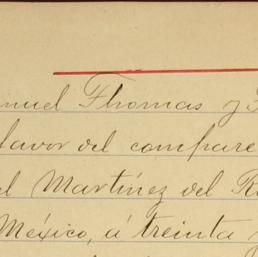 nuel Thomas y
favor del compare
el Martínez del R
México, á treinta